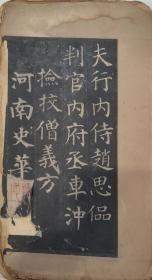 夫行內侍趙思偘
判官內府丞車沖
撿校僧義方
河南史華